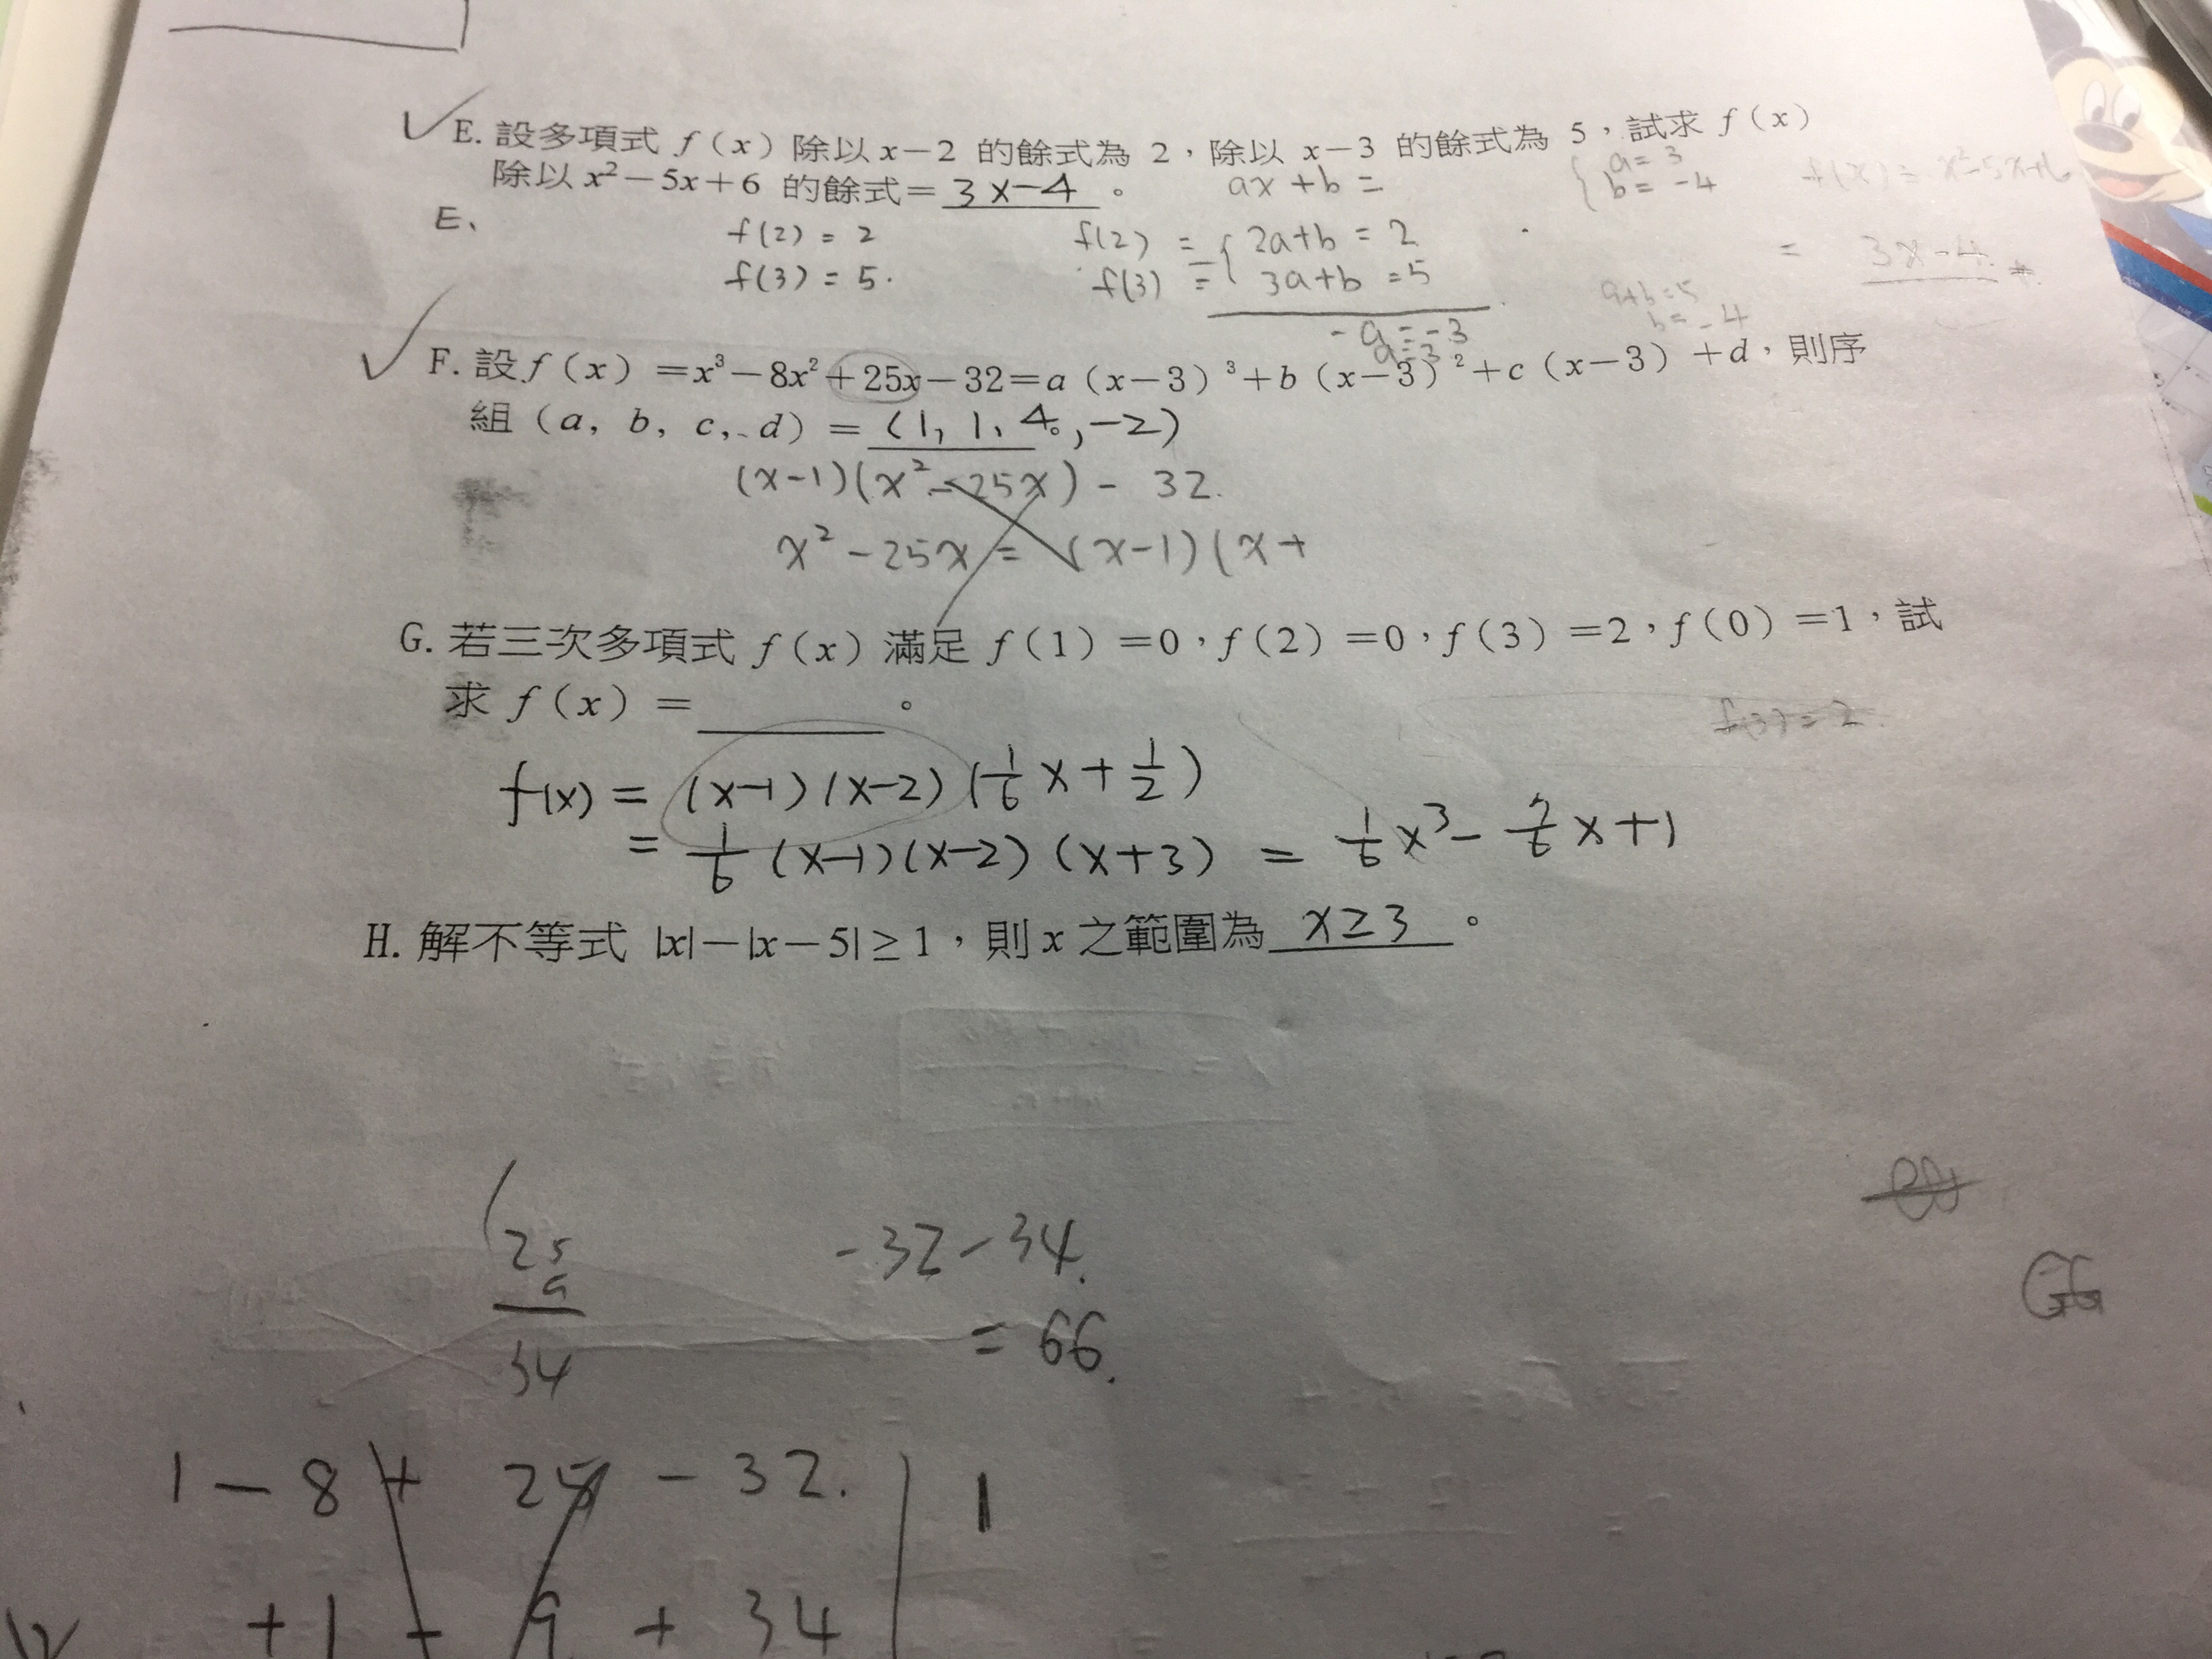 E. 設多項式 f(x) 除以 x－2 的餘式為 2，除以 x－3 的餘式為 5，試求 f(x)
除以 x²－5x＋6 的餘式＝ 3x-4 。
ax+b =
{ a=3
b= -4
f(x) = x²-5x+6
E、
f(2) = 2
f(3) = 5.
f(2) = { 2a+b = 2
f(3) = 3a+b = 5
= 3x-4
-a = -3
a=3
a+b=5
b= -4
F. 設 f(x) ＝x³－8x²＋25x－32＝a(x－3)³＋b(x－3)²＋c(x－3)＋d，則序
組(a, b, c, d) ＝ (1, 1, 4, -2) 。
(x-1)(x²-25x) - 32.
x²-25x = (x-1)(x+
G. 若三次多項式 f(x) 滿足 f(1)＝0，f(2)＝0，f(3)＝2，f(0)＝1，試
求 f(x) ＝ 。
f(3) = 2.
f(x) = (x-1)(x-2)(1/6 x + 1/2)
= 1/6 (x-1)(x-2)(x+3) = 1/6 x³ - 7/6 x + 1
H. 解不等式 |x|－|x－5| ≥ 1，則 x 之範圍為 x≥3 。
25
9
34
-32-34.
= 66.
GG
1 - 8 + 25 - 32. | 1
+1 - 9 + 34